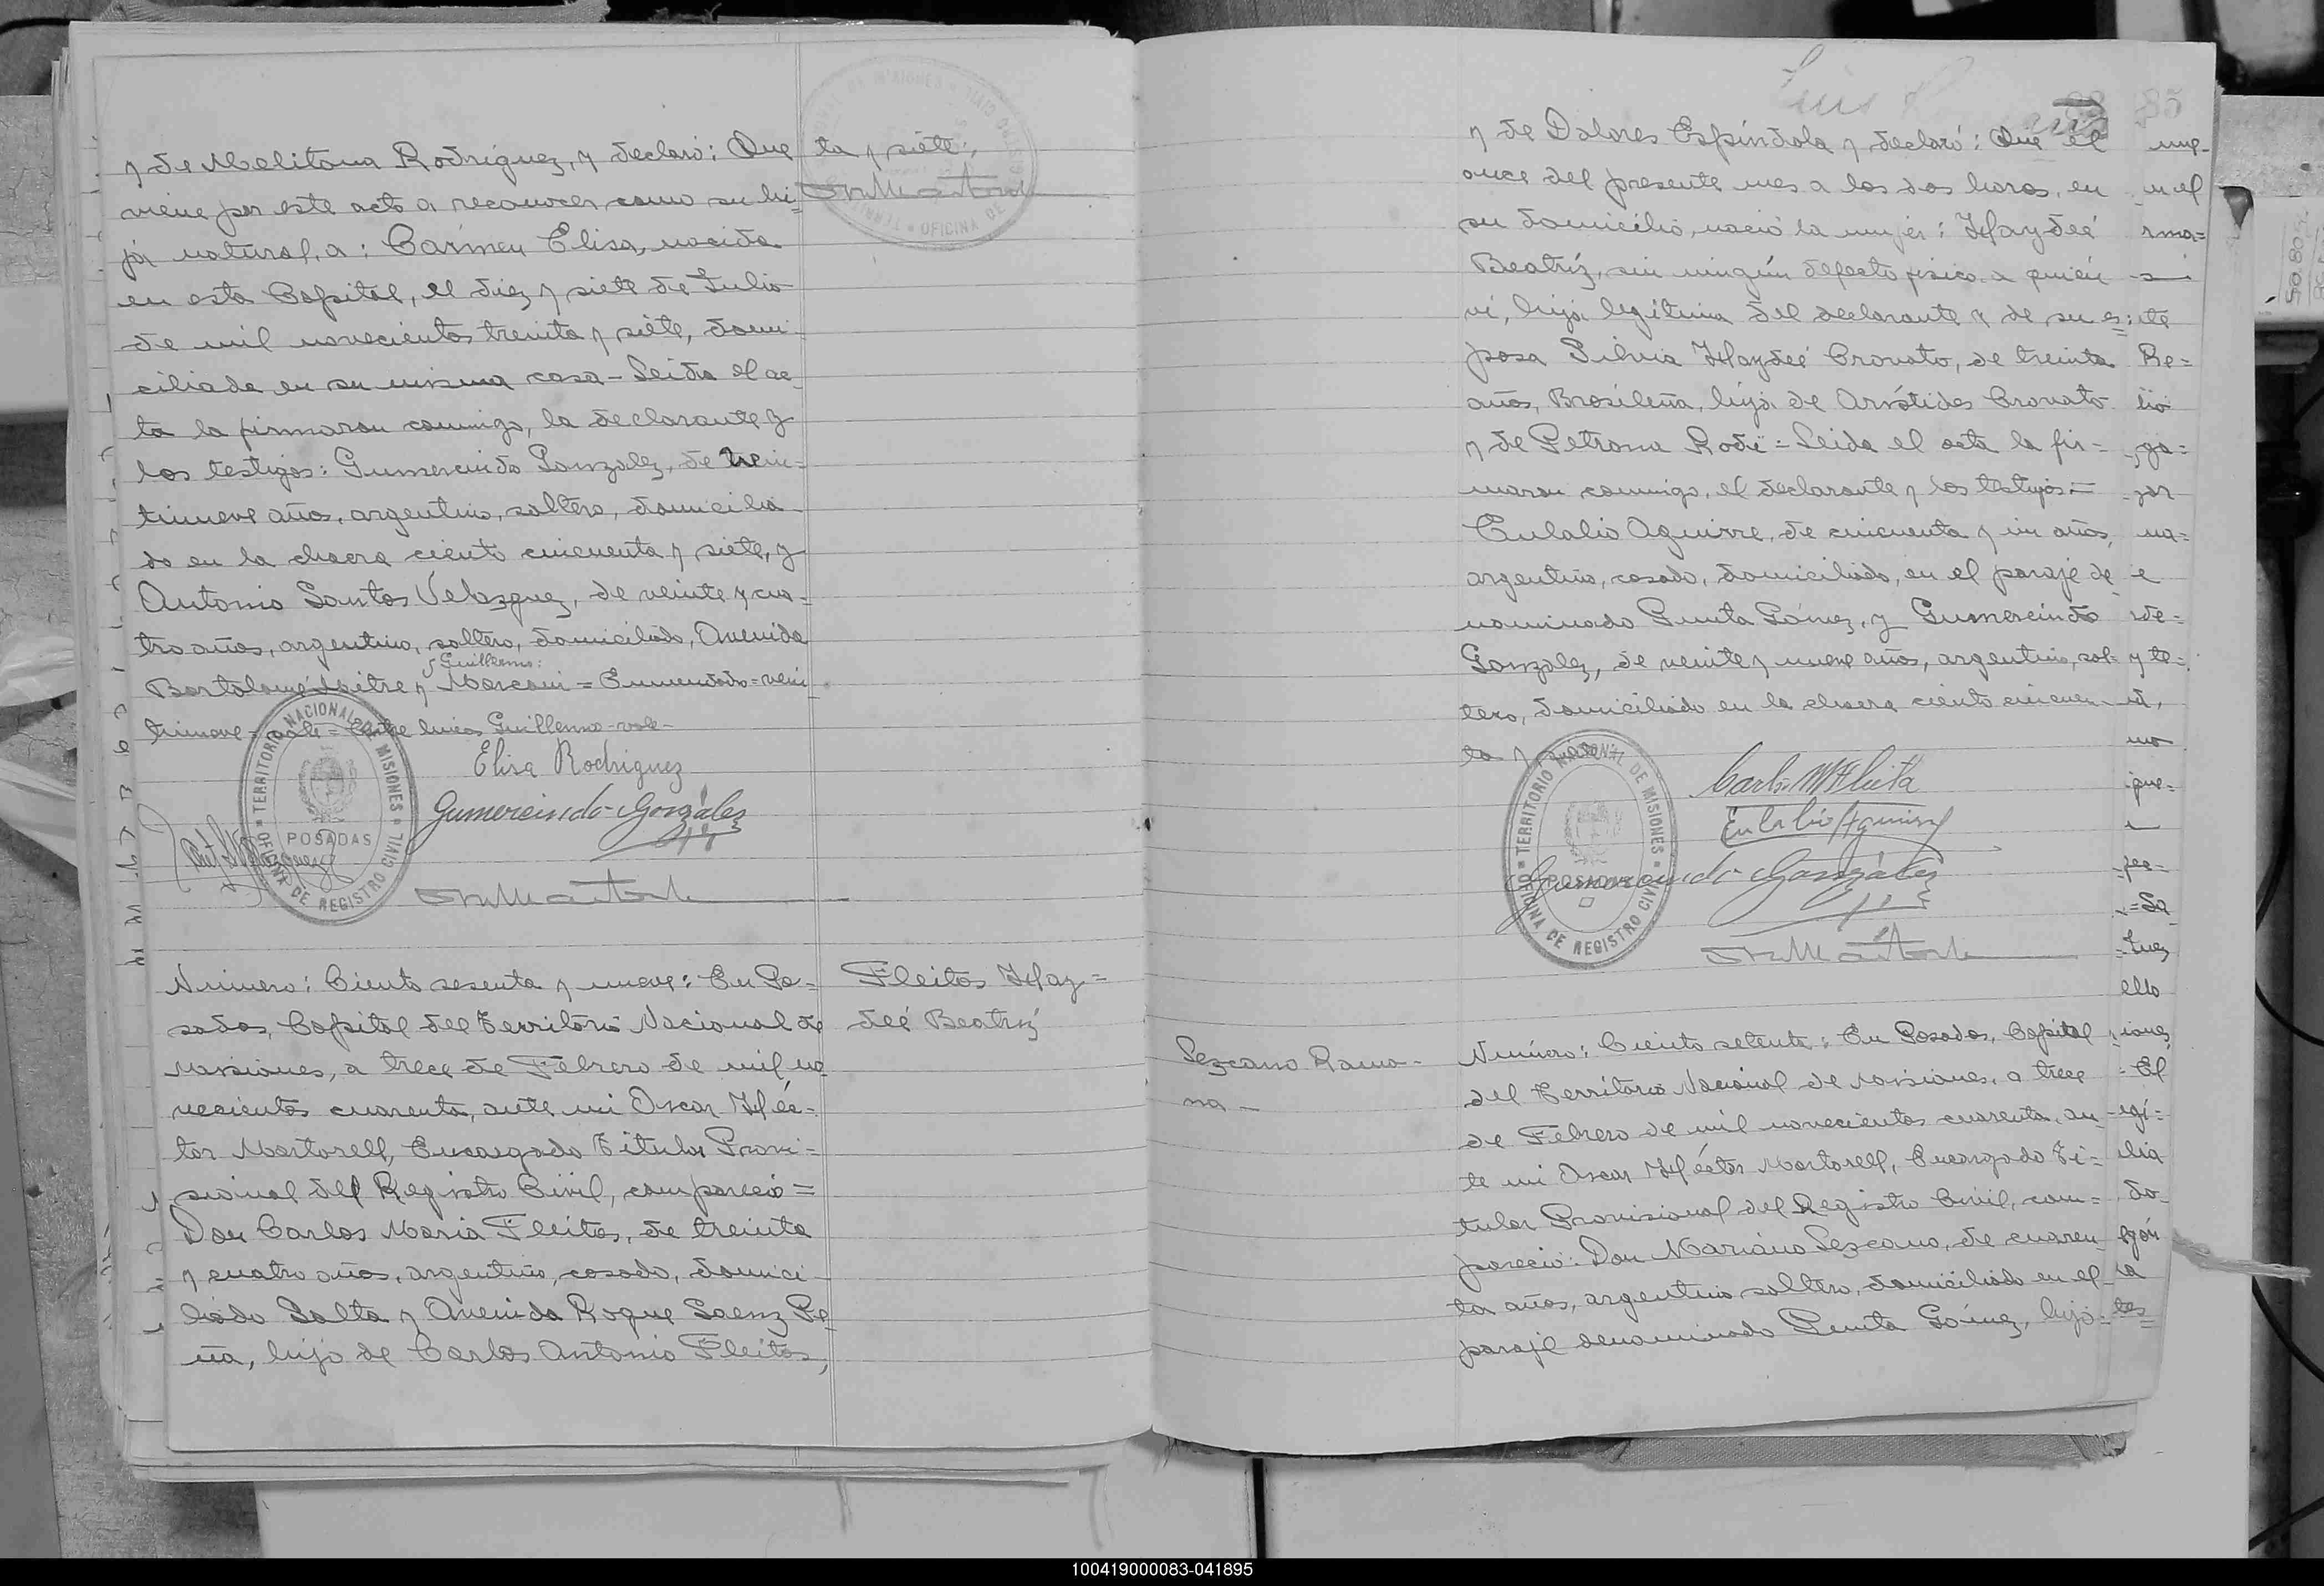 y de Melitona Rodríguez, y declaró: Que
viene por este acto a reconocer como su hi=
ja natural, a: Carmen Elisa, nacida
en esta Capital, el diez y siete de Julio
de mil novecientos treinta y siete, domi-
ciliada en su misma casa - Leida el ac-
ta la firmaron conmigo, la declarante y
los testigos: Gumercindo Gonzalez, de vein-
tinueve años, argentino, soltero, domicilia-
do en la chacra ciento cincuenta y siete, y
Antonio Santos Velazquez, de veinte y cua-
tro años, argentino, soltero, domiciliado, Avenida
Guillermo:
Bartolomé Mitre y Marconi = Enmendado = vein
tinueve = vale = Entre lineas Guillermo - vale -
TERRITORIO NACIONAL DE MISIONES
POSADAS
OFICINA DE REGISTRO CIVIL
Elisa Rodriguez
Gumercindo Gonzalez
ta y siete:
OFICINA DE
Número: Ciento sesenta y nueve: En Po-
sadas, Capital del Territorio Nacional de
Misiones, a trece de Febrero de mil no
vecientos cuarenta, ante mi Oscar Héc-
tor Martorell, Encargado Titular Provi=
sional del Registro Civil, compareció =
Don Carlos Maria Fleitas, de treinta
y cuatro años, argentino, casado, domici-
liado Salta y Avenida Roque Saenz Pe
ña, hijo de Carlos Antonio Fleitas,
Fleitas Hay=
deé Beatriz
Luis
85
y de Dolores Espíndola y declaró: Que el
once del presente mes a las dos horas, en
su domicilio, nació la mujer: Haydeé
Beatriz, sin ningún defecto fisico a quién
vi, hija legítima del declarante y de su es=
posa Silvia Haydeé Cronato, de treinta
años, Brasileña, hija de Arístides Cronato
y de Petrona Rodi = Leida el acta la fir=
maron conmigo, el declarante y los testigos:=
Eulalio Aguirre, de cincuenta y un años,
argentino, casado, domiciliado, en el paraje de
nominado Punta Gómez, y Gumercindo
Gonzalez, de veinte y nueve años, argentino, sol-
tero, domiciliado en la chacra ciento cincuen-
ta y siete
TERRITORIO NACIONAL DE MISIONES
POSADAS
OFICINA DE REGISTRO CIVIL
Carlos M Fleita
Eulalio Aguirre
Gumercindo Gonzalez
Lezcano Ramo-
na -
Número: Ciento setenta: En Posadas, Capital
del Territorio Nacional de Misiones, a trece
de Febrero de mil novecientos cuarenta, an-
te mi Oscar Héctor Martorell, Encargado Ti-
tular Provisional del Registro Civil, com=
pareció: Don Mariano Lezcano, de cuaren-
ta años, argentino soltero, domiciliado en el
paraje denominado Punta Gómez, hijo=
100419000083-041895